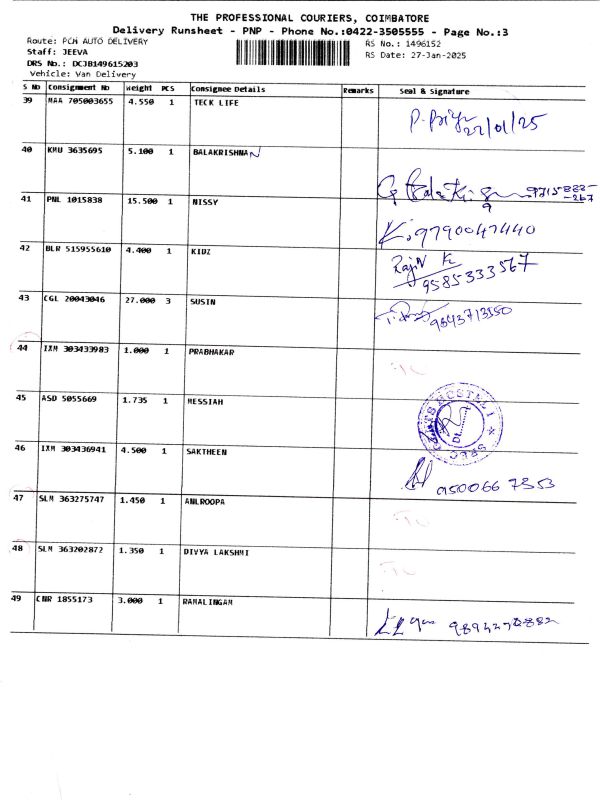 THE PROFESSIONAL COURIERS, COIMBATORE
Delivery Runsheet - PNP - Phone No.:0422-3505555 - Page No.:3
Route: PCM AUTO DELIVERY
RS No.: 1496152
Staff: JEEVA
RS Date: 27-Jan-2025
DRS No.: DCJB149615203
Vehicle: Van Delivery
S No Consignment No Weight PCS Consignee Details Remarks Seal & Signature
39 MAA 705003655 4.550 1 TECK LIFE
27/01/25
40 KMU 3635695 5.100 1 BALAKRISHNAN
41 PNL 1015838 15.500 1 NISSY
K. 9790047440
42 BLR 515955610 4.400 1 KIDZ
Rajiv K
9585333567
43 CGL 20043046 27.000 3 SUSIN
9843713350
44 IXM 303433983 1.000 1 PRABHAKAR
45 ASD 5055669 1.735 1 MESSIAH
46 IXM 303436941 4.500 1 SAKTHEEN
9500667353
47 SLM 363275747 1.450 1 ANLROOPA
48 SLM 363202872 1.350 1 DIVYA LAKSHMI
49 CNR 1855173 3.000 1 RAMALINGAM